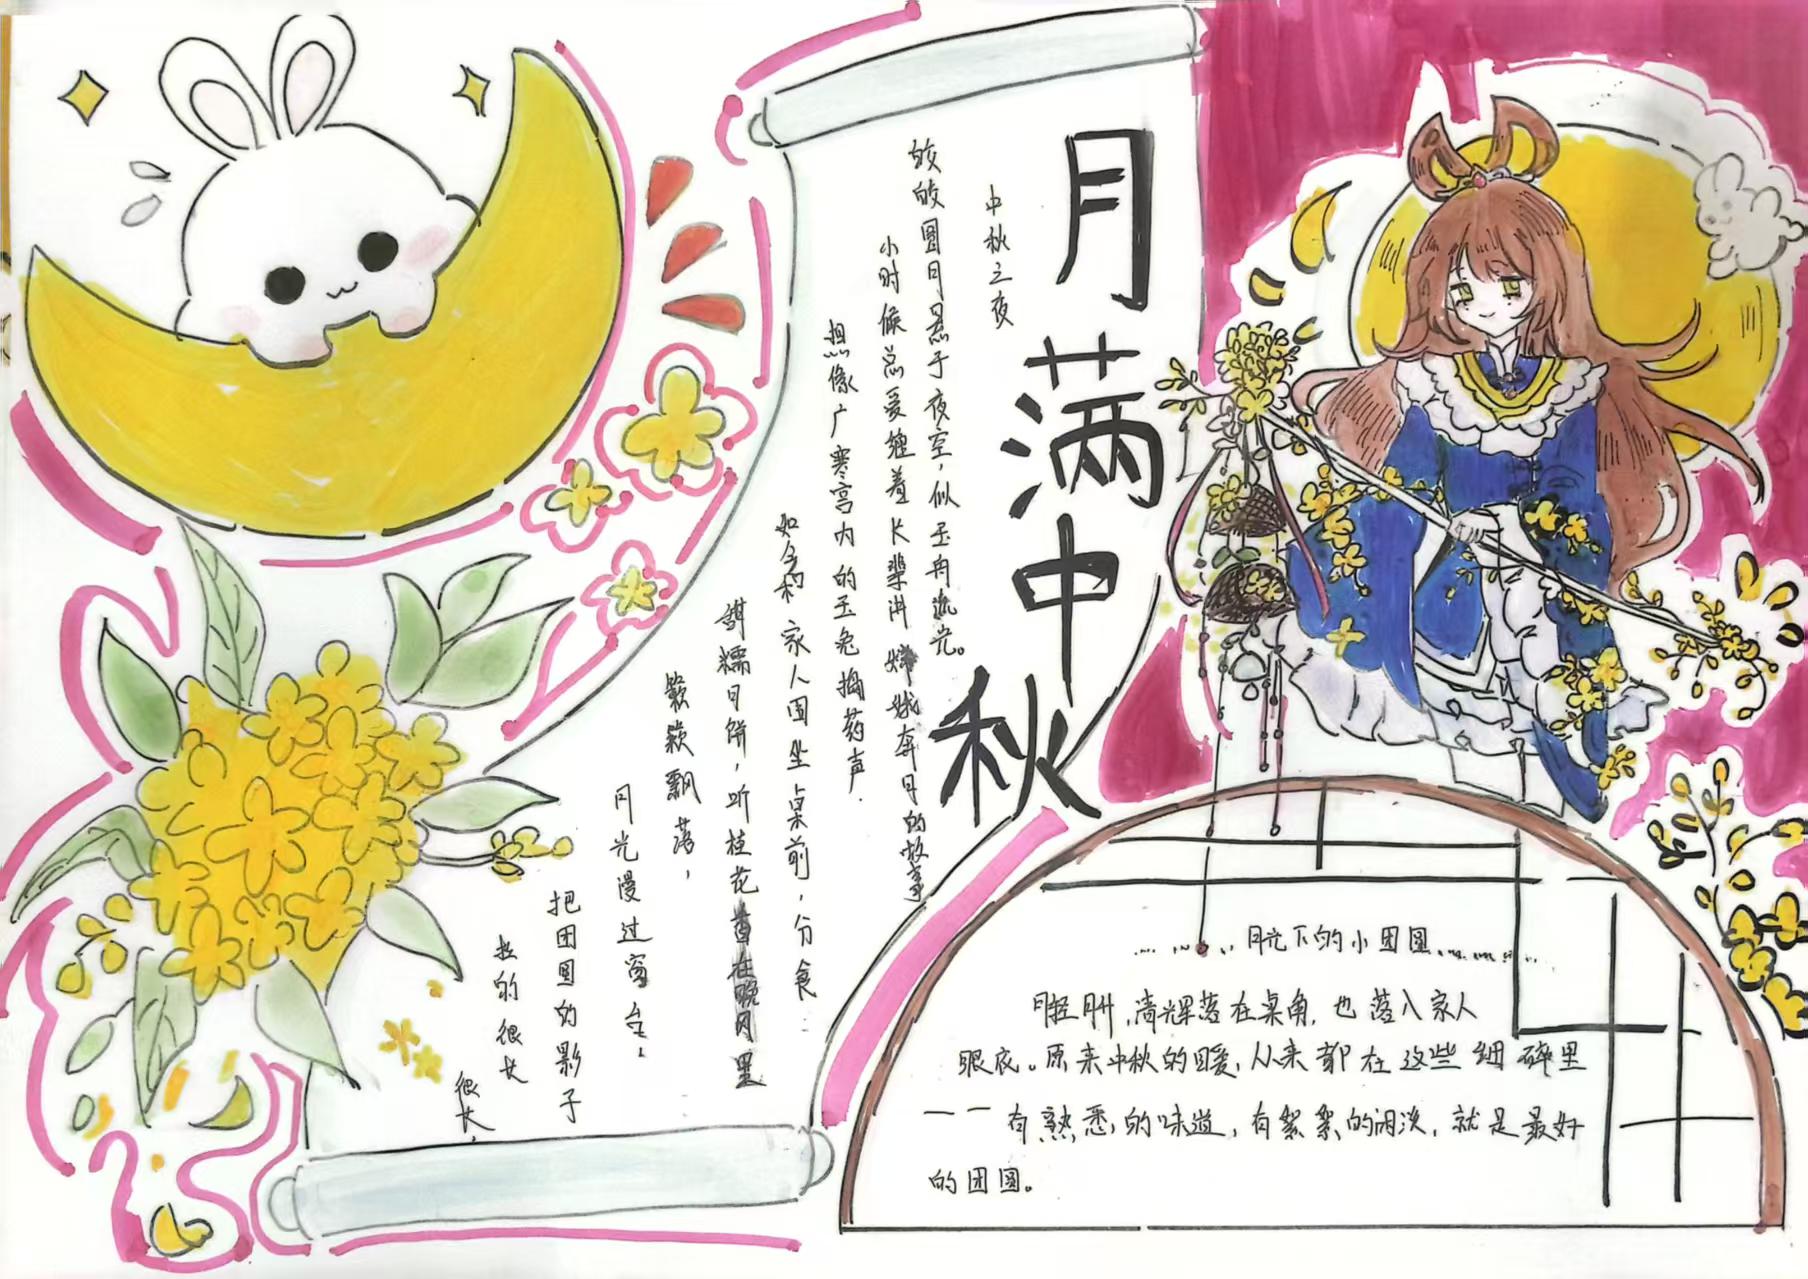 月满中秋
中秋之夜
皎皎圆月悬于夜空，似玉冉流光。
小时候总爱缠着长辈讲嫦娥奔月的故事
想像广寒宫内的玉兔捣药声.
如今和家人围坐桌前，分食
甜糯月饼，听桂花
簌簌飘落，
月光漫过窗台，
把团圆的影子
拉的很长
很长，
月光下的小团圆
月轻 ，清辉落在桌角，也落入家人
眼底。原来中秋的暖，从来都在这些细碎里
一一有熟悉的味道，有絮絮的闲谈，就是最好
的团圆。